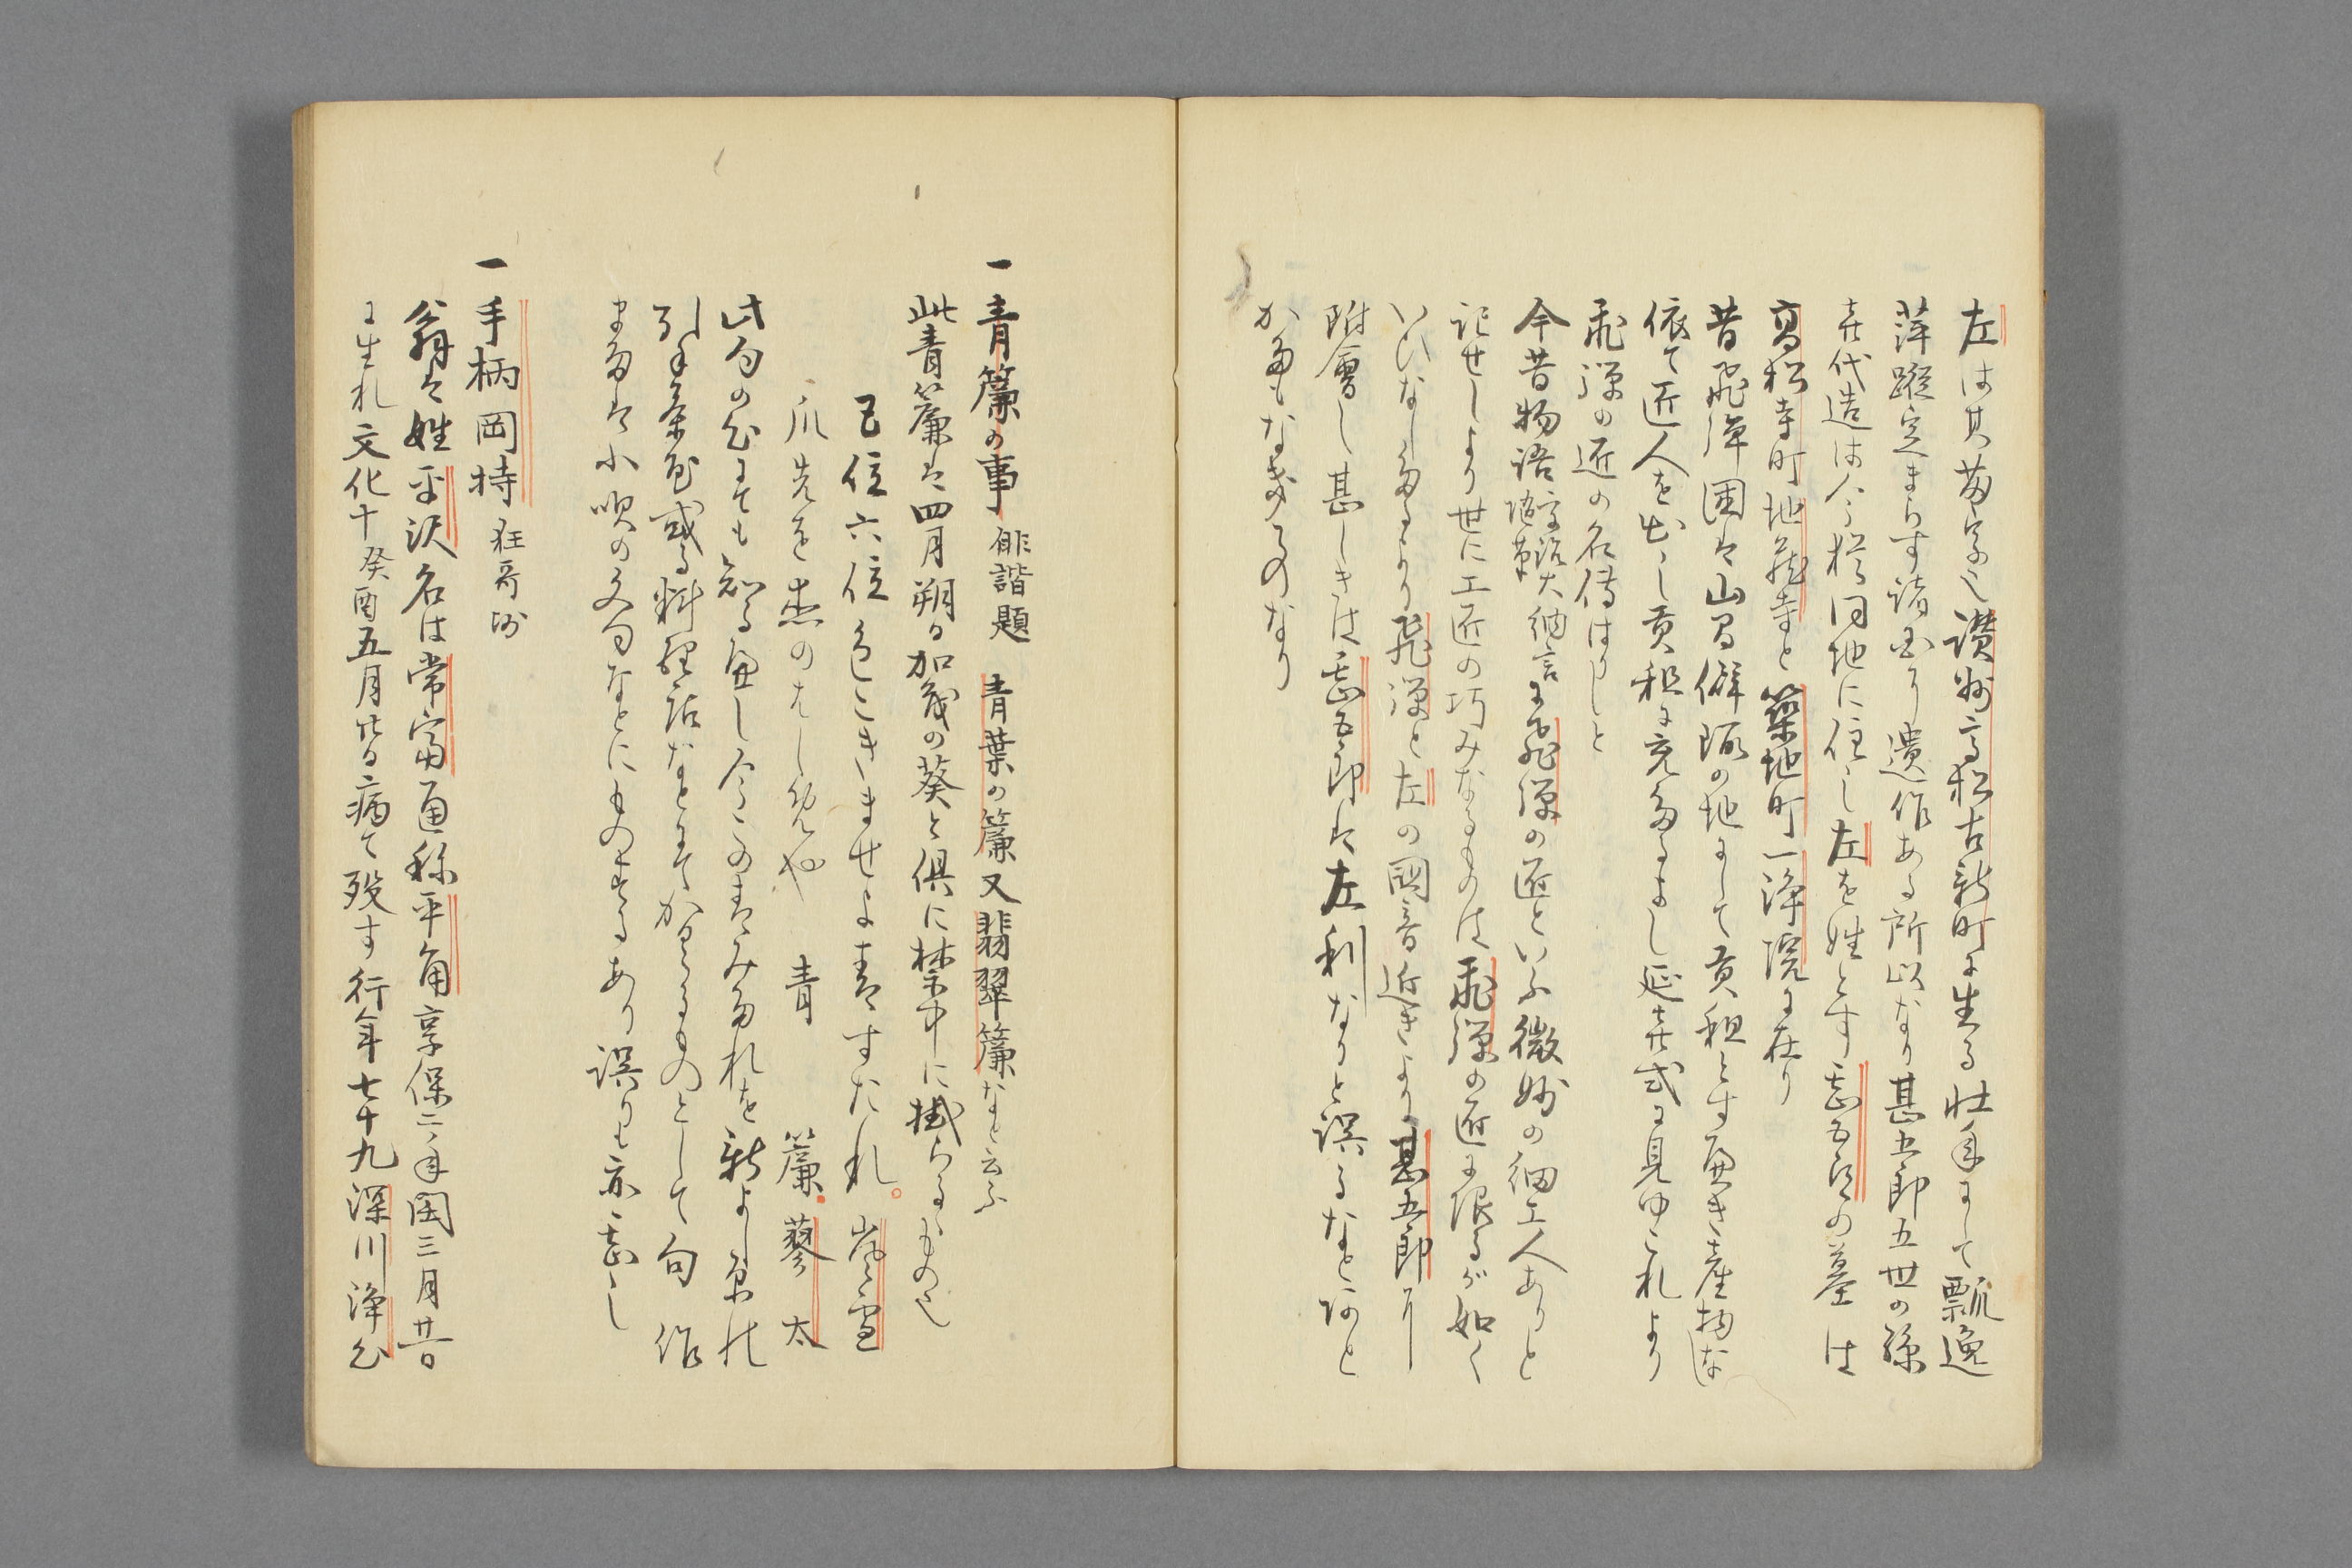 左は其苗字也讃州高松古新町に生る壮年にして瓢逸
萍蹤定まらす諸国に遺作ある所以なり甚五郎五世の孫
喜代造は今猶同地に住し左を姓とす甚五郎の墓は
高松寺町地蔵寺と築地町一浄院に在り
昔飛弾国は山高僻陬の地にして貢租とす可き産物な
依て匠人を出し貢租に充たるよし延喜式に見ゆこれより
飛弾の匠の名傳はりしと
今昔物語 宇治大納言 隆国著 に飛弾の匠といふ微妙の細工人ありと
記せしより世に工匠の巧みなるものは飛弾の匠に限るが如く
いひなしたるより飛弾と左の國音近きより甚五郎に
附會し甚しきは甚五郎は左利なりと誤るなと
かたもなきものなり
一 青簾の事 俳諧題 青葉の簾又翡翠簾なと云ふ
此青簾は四月朔日加茂の葵と倶に禁中に掛らるゝもの也
五位六位色こきませよ青すたれ。 嵐雪
爪先を恚のはしめや 青簾 蓼太
此句の心にても知る可し今この青みたれを新よし原の
引手茶屋或る料理店なとにてかくるものとして句作
または小唄の文句なとにものするあり誤りも亦甚し
一 手柄岡持 狂哥師
翁は姓平沢名は常富通称平角享保二十年閏三月廿一日
に生れ文化十癸酉五月廿日病て歿す行年七十九深川浄心